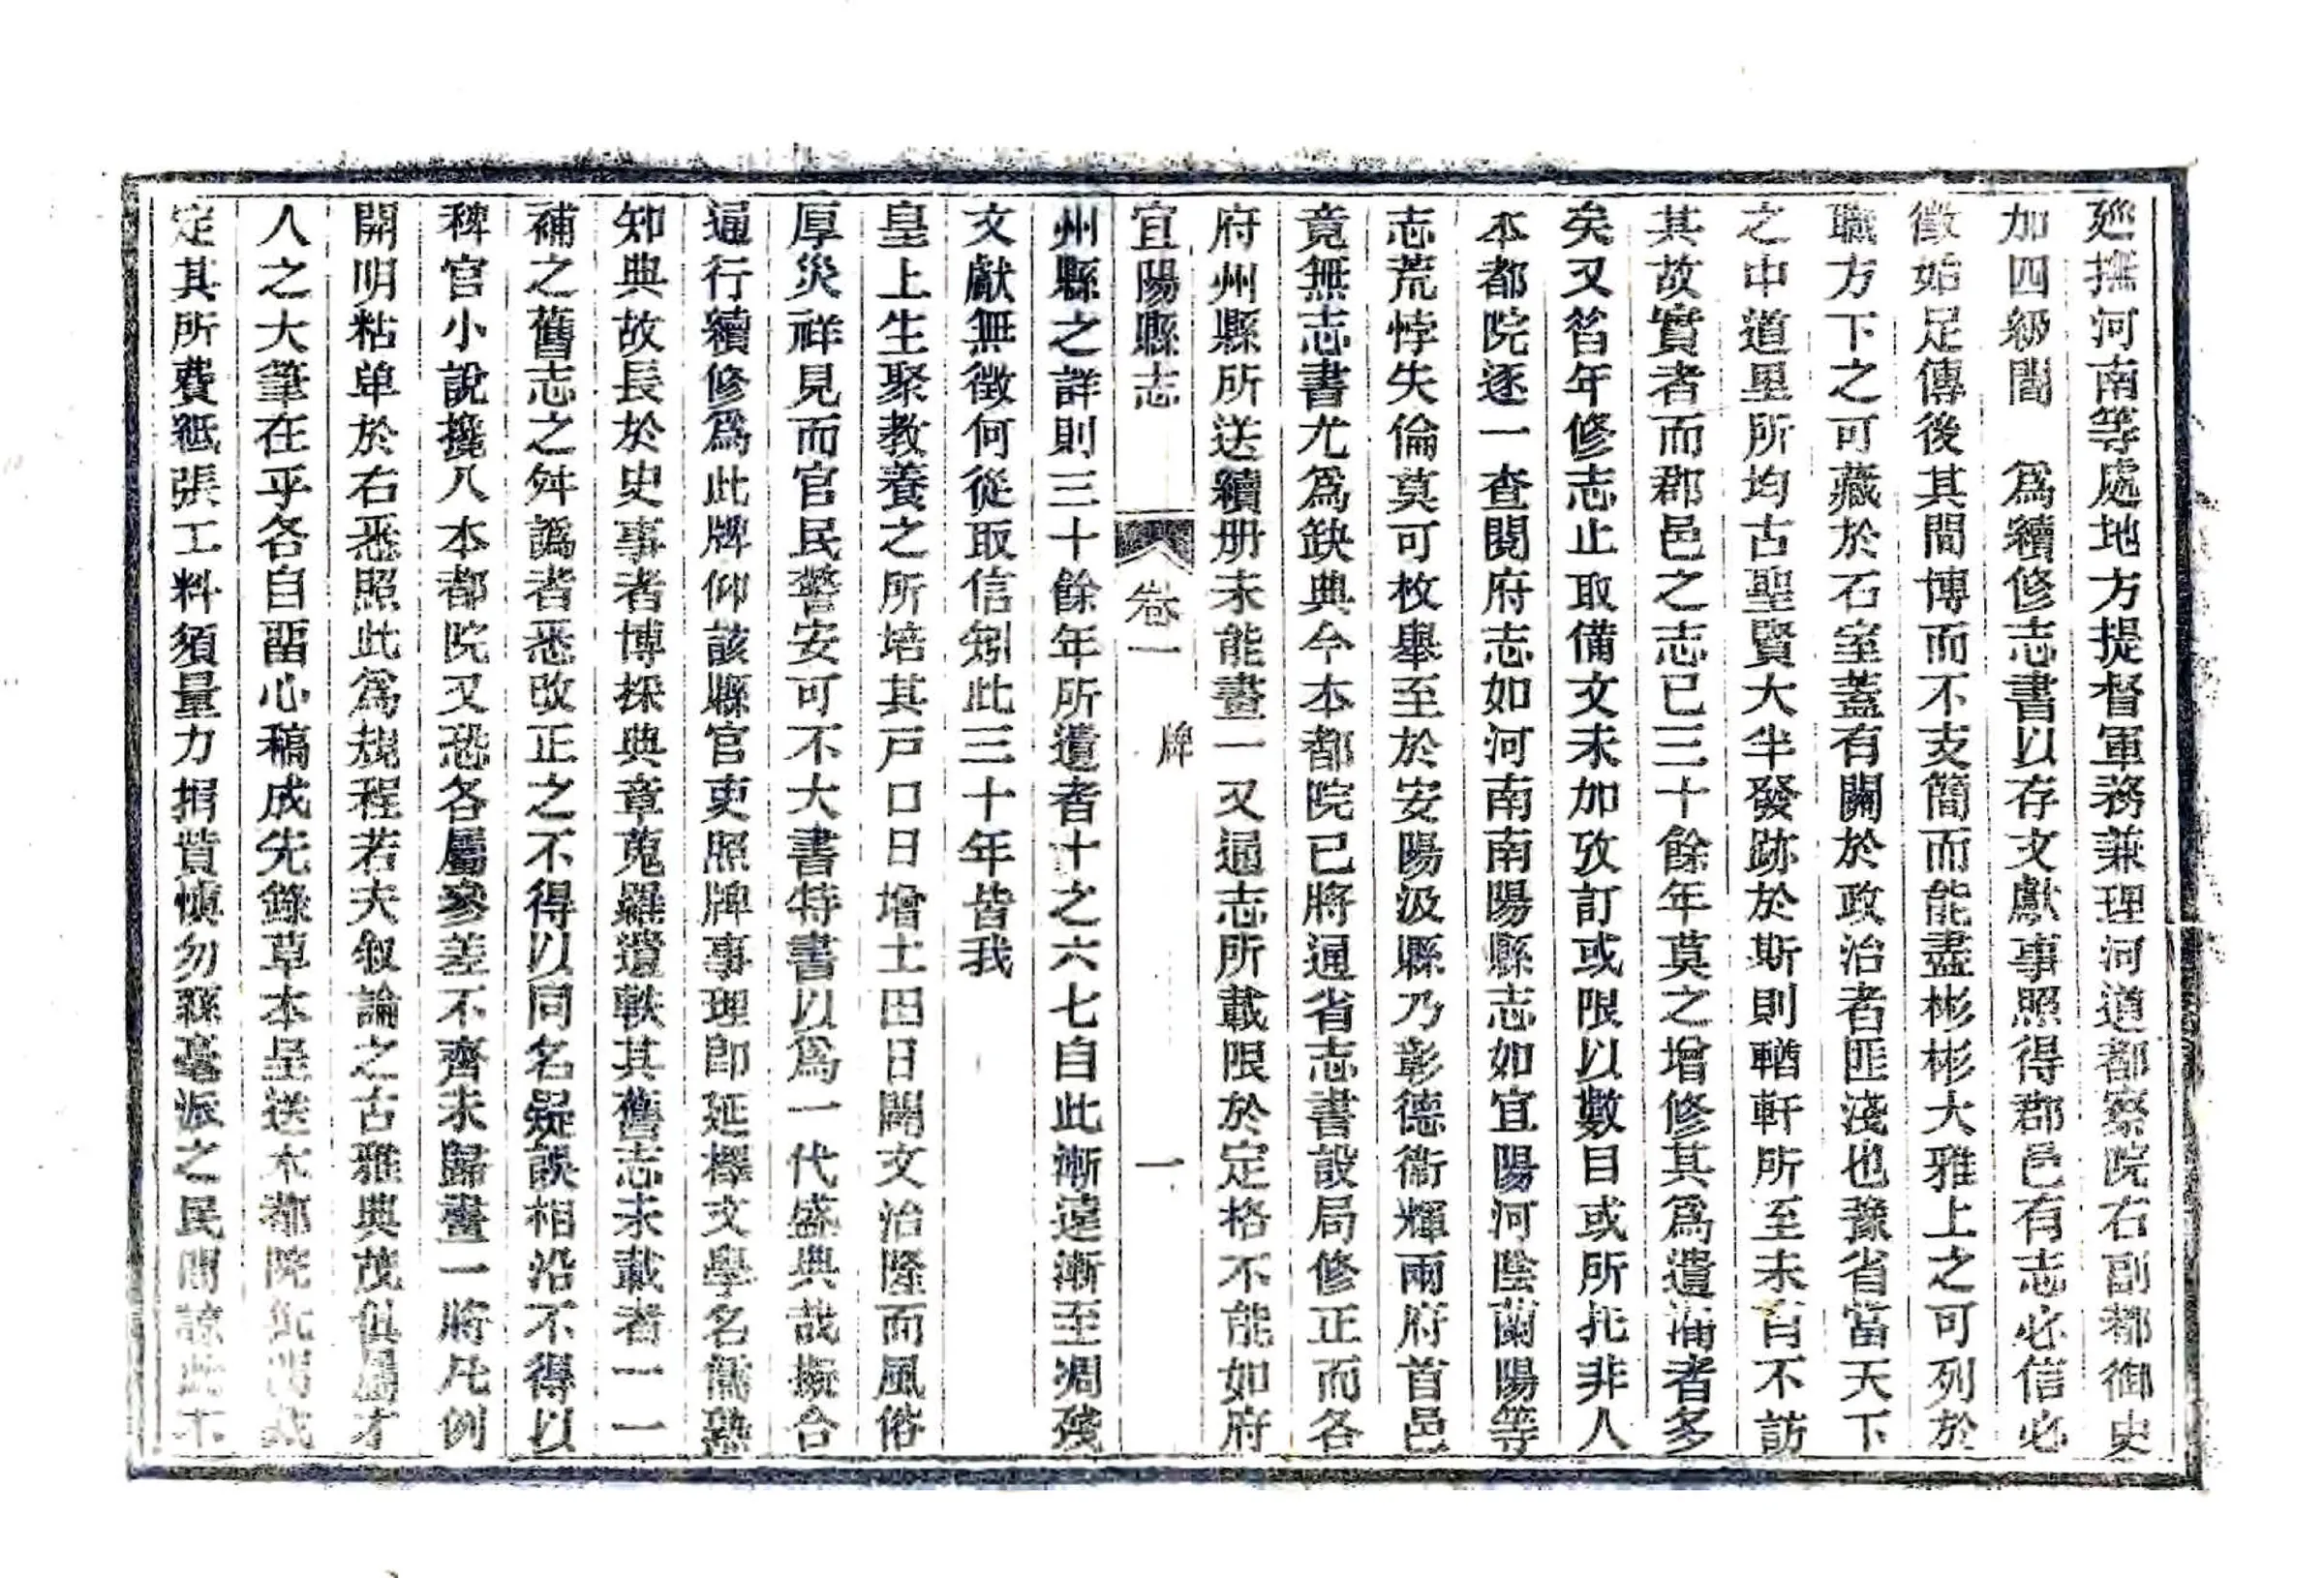 巡撫河南等處地方提督軍務兼理河道都察院右副都御史
加四級閻　爲續修志書以存文獻事照得郡邑有志必信必
徵始足傳後其間博而不支簡而能盡彬彬大雅上之可列於
職方下之可藏於石室蓋有關於政治者匪淺也豫省當天下
之中道里所均古聖賢大半發跡於斯則輶軒所至未有不訪
其故實者而郡邑之志已三十餘年莫之增修其爲遺漏者多
矣又當年修志止取備文未加攷訂或限以數目或所托非人
本都院逐一查閱府志如河南南陽縣志如宜陽河陰蘭陽等
志荒悖失倫莫可枚舉至於安陽汲縣乃彰德衞輝兩府首邑
竟無志書尤爲缺典今本都院已將通省志書設局修正而各
府州縣所送續册未能畫一又通志所載限於定格不能如府
宜陽縣志　卷一　牌　一
州縣之詳則三十餘年所遺者十之六七自此漸遠漸至凋殘
文獻無徵何從取信矧此三十年皆我
皇上生聚教養之所培其戸口日增土田日闢文治隆而風俗
厚災祥見而官民警安可不大書特書以爲一代盛典哉擬合
通行續修爲此牌仰該縣官吏照牌事理卽延擇文學名儒熟
知典故長於史事者博採典章蒐羅遺軼其舊志未載者一一
補之舊志之舛譌者悉改正之不得以同名疑誤相沿不得以
稗官小說攙入本都院又恐各屬參差不齊未歸畫一將凡例
開明粘单於右悉照此爲規程若夫叙論之古雅典茂俱屬才
人之大筆在乎各自留心稿成先錄草本呈送本都院
定其所費紙張工料須量力捐貲愼勿絲毫派之民間諒